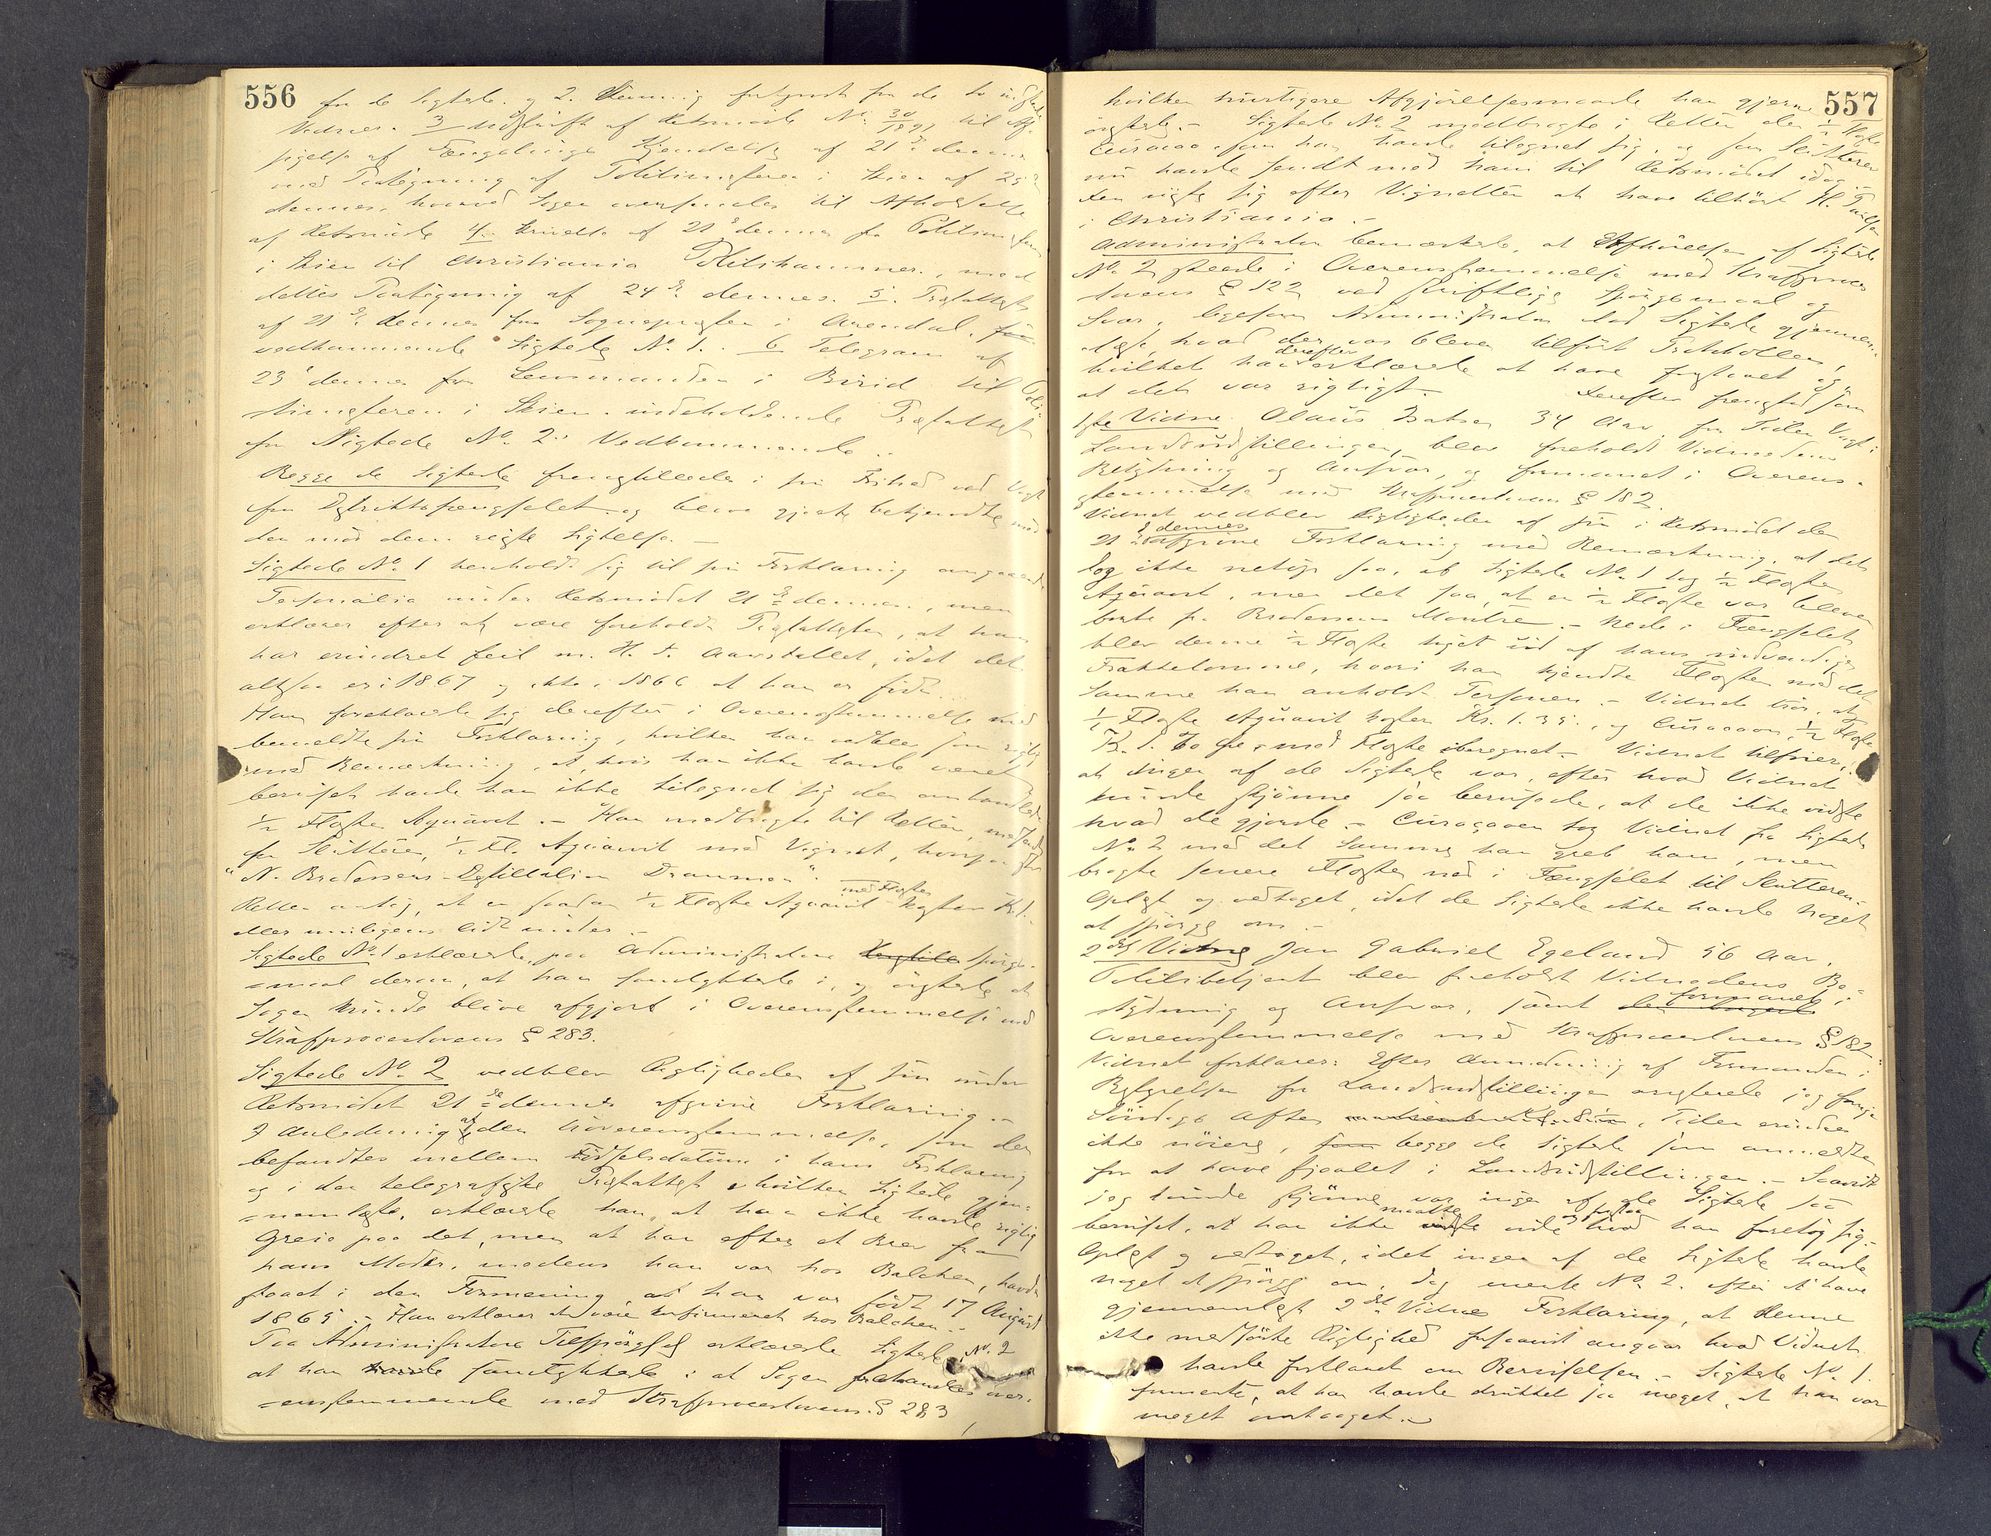 556
for de Sigtede og 2. Stævning forkyndt for de to indstævnte
Vidner. 3 Udskrift af Retsmøde No 30/1891 til Af-
sigelse af Fængslings Kjendelse af 21de dennes
med Paategning af Politimesteren i Skien af 25de
dennes, hvorved Sagen oversendes til Afholdelse
af Retsmøde. 4. Skrivelse af 21de dennes fra Politimesteren
i Skien til Christiania Politikammer, med
dettes Paategning af 24de dennes. 5. Præsteattest
af 21de dennes fra Sognepresten i Arendal
vedkommende Sigtede No 1. 6 Telegram af
23de dennes fra Lensmanden i Birid til Poli-
timesteren i Skien indeholdende Præsteattest
for Sigtede No 2's Vedkommende.
Begge de Sigtede fremstillede i fri Tilstand ved Vagt
fra Distriktsfængselet og bleve gjorte bekjendte med
den mod dem reiste Sigtelse. –
Sigtede No 1 henholdt sig til sin Forklaring angaaende
Personalia under Retsmødet 21de dennes, men
erklærer efter at være foreholdt Præsteattesten, at han
har erindret feil m. H. t. Aarstallet, idet det
altsaa er i 1867 og ikke i 1866 at han er født.
Han forklarede sig derefter i Overensstemmelse med
bemeldte sin Forklaring, hvilken han vedblev som rigtig
med Bemærkning, at, hvis han ikke havde været
beruset havde han ikke tilegnet sig den omhandlede
1/2 Flaske Aqvavit. – Han medbragte til Retten, medsendt
fra Slutteren, 1/2 Fl. Aqvavit med Vignet, hvorpaa stod
"N. Brodersens Destillation Drammen".
Retten antog, at en saadan 1/2 Flaske Aqvavit med Flasken koster Kr. 1.
eller muligens lidt mindre. –
Sigtede No 1 erklærede paa Administrators Spørgs-
maal derom, at han samtykkede i, og ønskede at
Sagen kunde blive afgjort i Overensstemmelse med
Strafproceslovens § 283.
Sigtede No 2 vedblev Rigtigheden af sin under
Retsmødet 21de dennes afgivne Forklaring. –
I Anledning af den Uoverensstemmelse, som der
befandtes mellem Fødselsdatum i hans Forklaring
og i den telegrafiske Præsteattest, hvilken Sigtede gjen-
nemlæste, erklærede han, at han ikke havde rigtig
Greie paa det, men at han efter et Brev fra
hans Moder, medens han var hos Balchen, havde
staaet i den Formening at han var født 17 August
1865. – Han erklærer at være konfirmeret hos Balchen. –
Paa Administrators Tilspørgsel erklærede Sigtede No 2
at han samtykkede i at Sagen behandles over-
ensstemmende med Strafproceslovens § 283
557
hvilken hurtigere Afgjørelsesmaade han gjerne
ønskede. – Sigtede No 2 medbragte i Retten den 1/2 Flaske
Curacao som han havde tilegnet sig, og som Slutteren
nu havde sendt med ham til Retsmødet idag.
Den viste sig efter Vignetten at have tilhørt H.
i Christiania. –
Administrator bemærkede, at Afhørelsen af Sigtede
No 2 skeede i Overensstemmelse med Strafproces-
lovens § 122 ved skriftlige Spørgsmaal og
Svar, ligesom Administrator lod Sigtede gjennem-
læse, hvad der var bleven tilført Protokollen,
hvilket han derefter erklærede at have forstaaet og
at det var rigtigt. – Derefter fremstod som
1ste Vidne Olaus 34 Aar, før Tiden Vagt i
Landsudstillingen, blev foreholdt Vidneedens
Betydning og Ansvar, og formanet i Overens-
stemmelse med Strafproceslovens § 182.
Vidnet vedblev Rigtigheden af sin i Retsmødet den
21de dennes afgivne Forklaring med Bemærkning, at det
saa ikke netop saa, at Sigtede No 1 tog 1/2 Flaske
Aqvavit, men det saa, at en 1/2 Flaske var bleven
borte fra Brodersens Montre. – Nede i Fængselet
blev denne 1/2 Flaske taget ud af hans indvendige
Frakkelomme, hvori han kjendte Flasken med det
samme han anholdt Personen. – Vidnet tror, at
1/2 Flaske Aqvavit koster Kr. 1.35, og Curacaoen, 1/2 Flaske
Kr. 1.60 Øre, med Flaske iberegnet. – Vidnet tilføier,
at ingen af de Sigtede var, efter hvad Vidnet
kunde skjønne saa berusede, at de ikke vidste
hvad de gjorde. – Curacaoen tog Vidnet fra Sigtede
No 2 med det Samme han greb ham, men
bragte senere Flasken ned i Fængselet til Slutteren.
Oplæst og vedtaget, idet de Sigtede ikke havde noget
at spørge om. –
2det Vidne Jan Gabriel Egeland 56 Aar,
Politibetjent blev foreholdt Vidneedens Be-
tydning og Ansvar, samt formanet i
Overensstemmelse med Strafproceslovens § 182.
Vidnet forklarer: Efter Anmodning af Formanden i
Bestyrelsen for Landsudstillingen arresterede jeg forrige
Søndags Aften, Tiden erindres
ikke nøiere, begge de Sigtede som anmeldte
for at have stjaalet i Landsudstillingen. – Saavidt
jeg kunde skjønne var ingen af de Sigtede saa
beruset, at han ikke maatte vide og forstaa hvad han foretog sig. –
Oplæst og vedtaget, idet ingen af de Sigtede havde
noget at spørge om, dog mente No 2 efter at have
gjennemlæst 2det Vidnes Forklaring, at denne
ikke medførte Rigtighed forsaavidt angaar hvad Vidnet
havde forklaret om Beruselsen. – Sigtede No 1.
formente, at han havde drukket saa meget, at han var
meget omtaaget. –